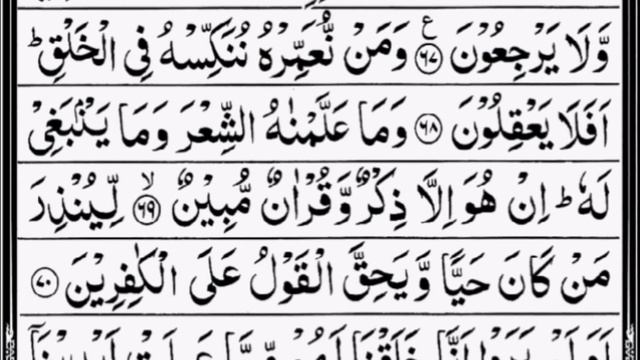 وَّلَا يَرْجِعُوْنَ ﴿۶۷﴾ ع وَمَنْ نُّعَمِّرْهُ نُنَكِّسْهُ فِى الْخَلْقِ ؕ
اَفَلَا يَعْقِلُوْنَ ﴿۶۸﴾ وَمَا عَلَّمْنٰهُ الشِّعْرَ وَمَا يَنْۢبَغِىْ
لَهٗ ؕ اِنْ هُوَ اِلَّا ذِكْرٌ وَّقُرْاٰنٌ مُّبِيْنٌ ﴿۶۹﴾ ۙ لِّيُنْذِرَ
مَنْ كَانَ حَيًّا وَّيَحِقَّ الْقَوْلُ عَلَى الْكٰفِرِيْنَ ﴿۷۰﴾